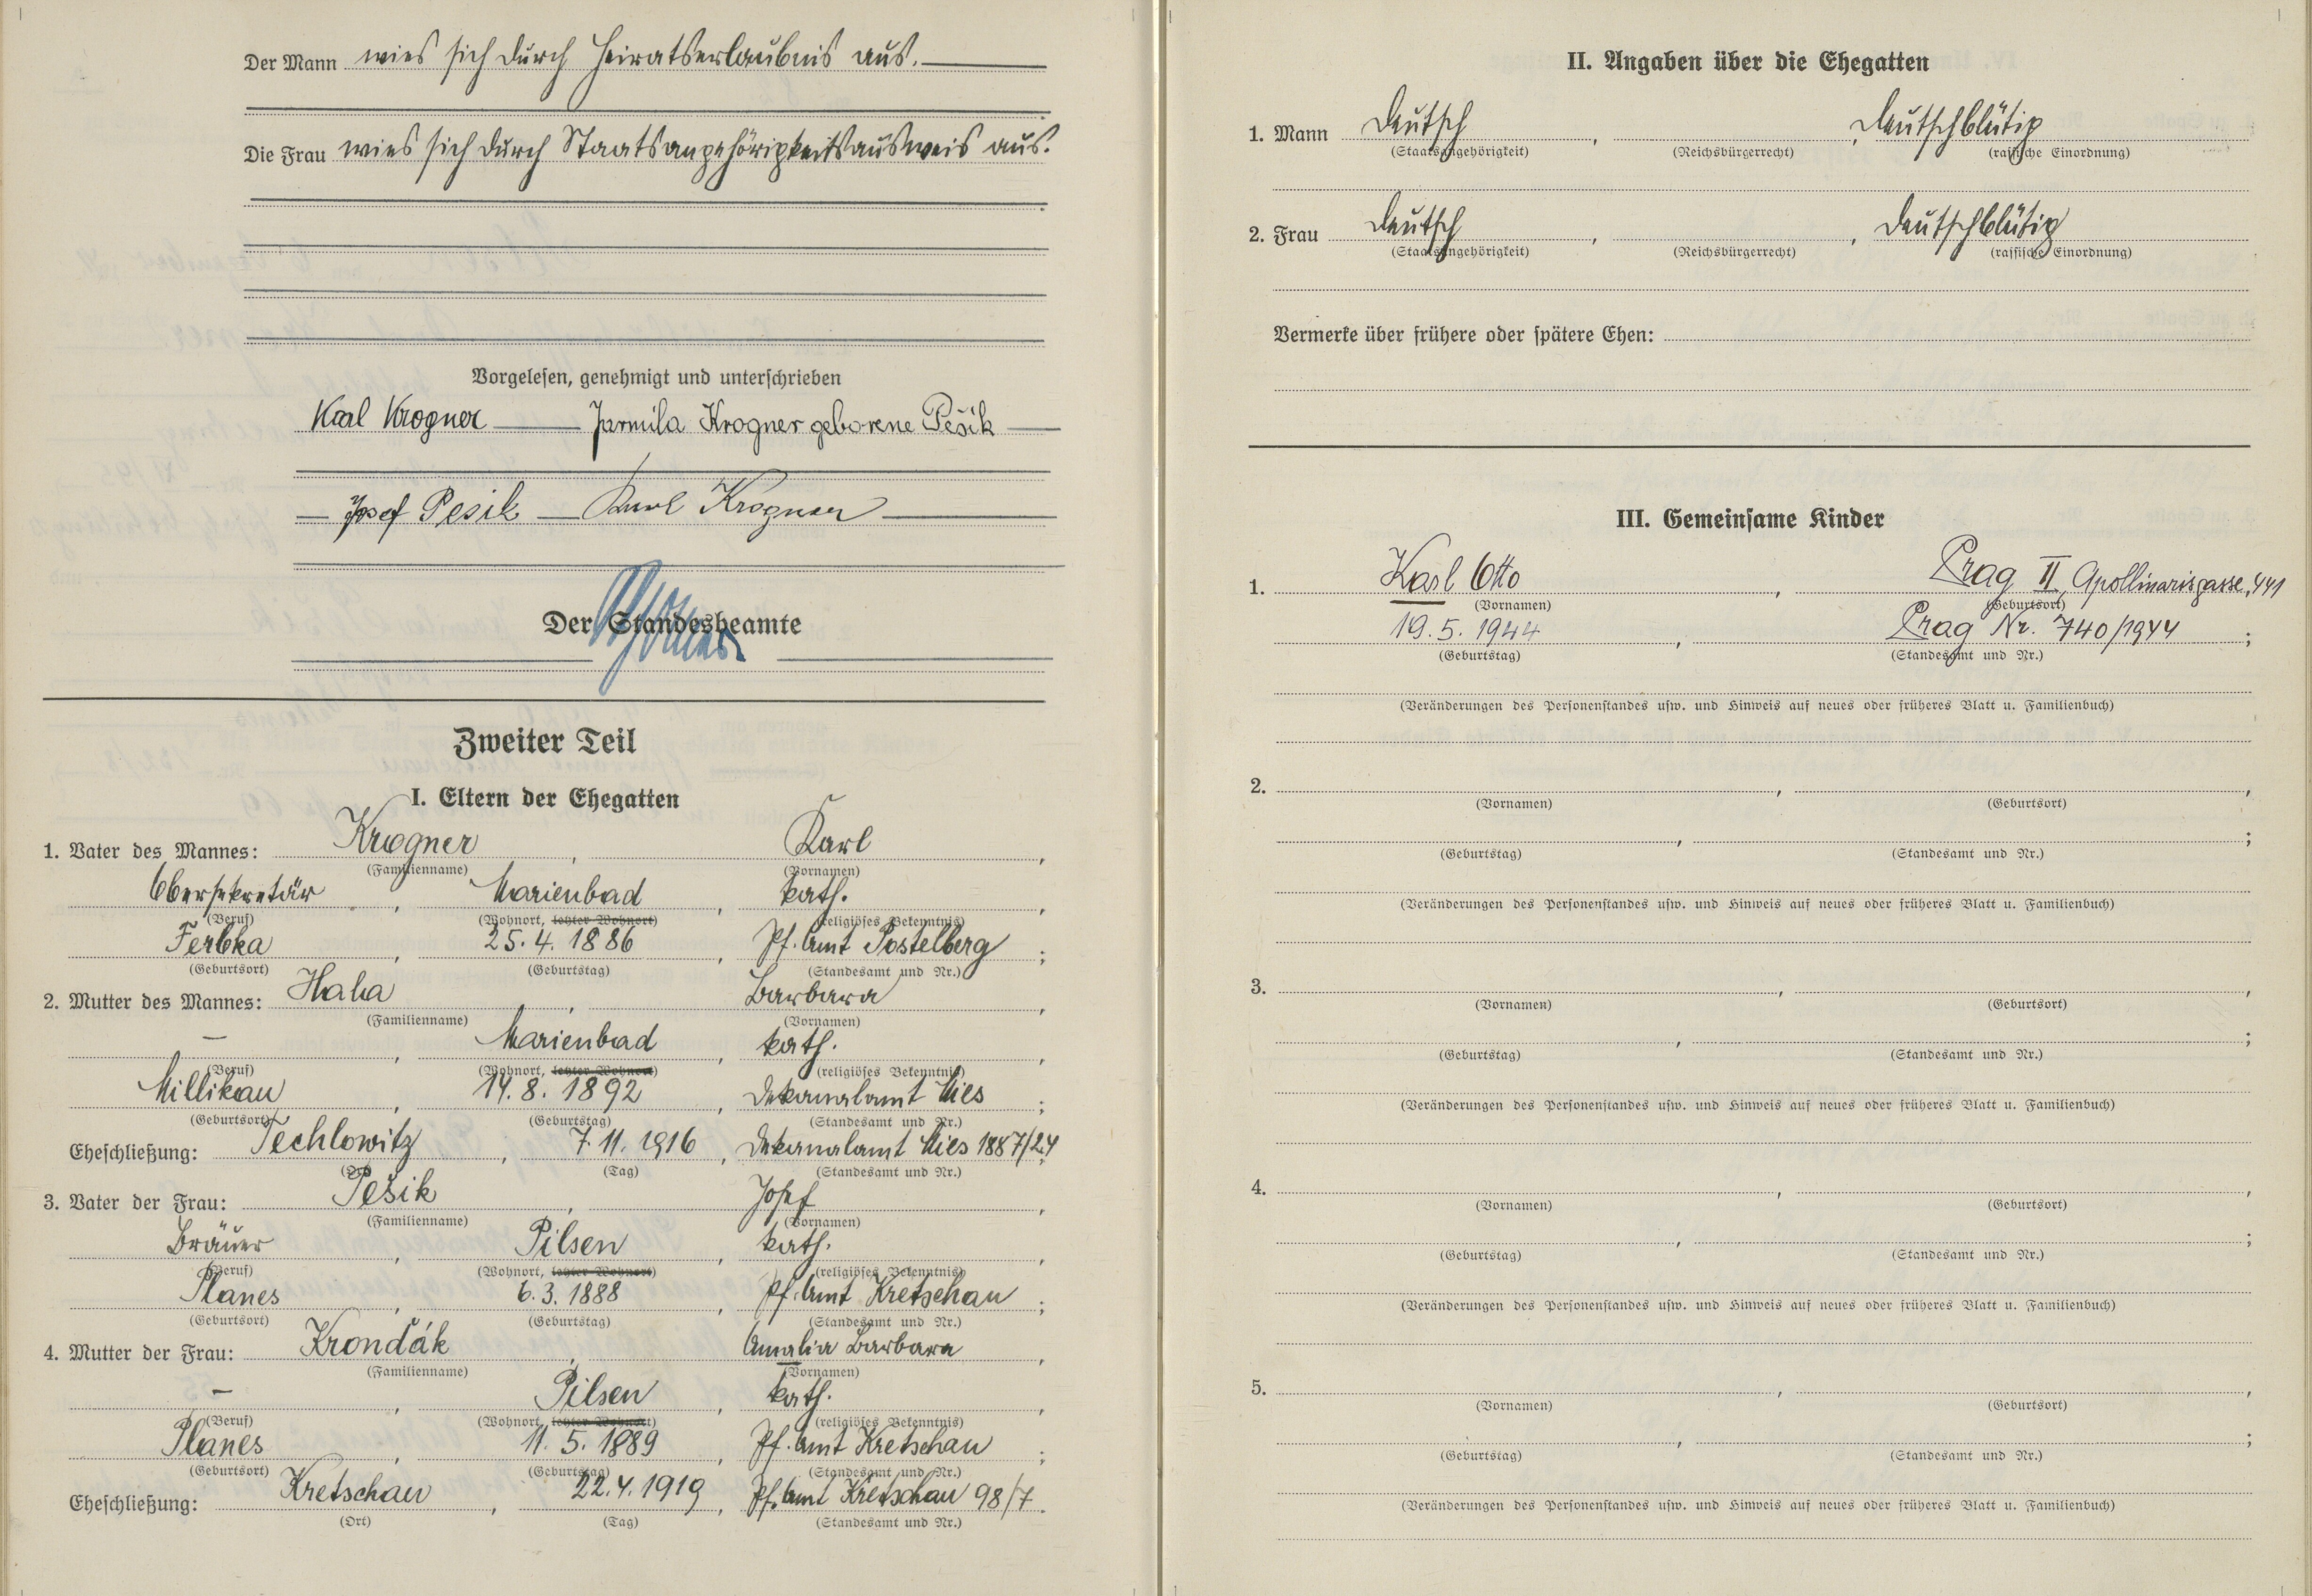 Der Mann wies sich durch Heiratserlaubnis aus.
Die Frau wies sich durch Staatsangehörigkeitsausweis aus.
Vorgelesen, genehmigt und unterschrieben
Karl Krogner — Jarmila Krogner geborene Pešik
— Josef Pesik — Karl Krogner —
Der Standesbeamte
Zweiter Teil
I. Eltern der Ehegatten
1. Vater des Mannes: Krogner, Karl,
(Familienname) (Vornamen)
Obersekretär, Marienbad, kath.,
(Beruf) (Wohnort, letzter Wohnort) (religiöses Bekenntnis)
Ferbka, 25.4.1886, Pf. Amt Postelberg;
(Geburtsort) (Geburtstag) (Standesamt und Nr.)
2. Mutter des Mannes: Haha, Barbara,
(Familienname) (Vornamen)
–, Marienbad, kath.,
(Beruf) (Wohnort, letzter Wohnort) (religiöses Bekenntnis)
Millikau, 14.8.1892, Dekanalamt Mies;
(Geburtsort) (Geburtstag) (Standesamt und Nr.)
Eheschließung: Techlowitz, 7.11.1916, Dekanalamt Mies 1887/24;
(Ort) (Tag) (Standesamt und Nr.)
3. Vater der Frau: Pešik, Josef,
(Familienname) (Vornamen)
Bräuer, Pilsen, kath.,
(Beruf) (Wohnort, letzter Wohnort) (religiöses Bekenntnis)
Planes, 6.3.1888, Pf. Amt Kretschau;
(Geburtsort) (Geburtstag) (Standesamt und Nr.)
4. Mutter der Frau: Krondák, Amalia Barbara,
(Familienname) (Vornamen)
–, Pilsen, kath.,
(Beruf) (Wohnort, letzter Wohnort) (religiöses Bekenntnis)
Planes, 11.5.1889, Pf. Amt Kretschau;
(Geburtsort) (Geburtstag) (Standesamt und Nr.)
Eheschließung: Kretschau, 22.4.1919, Pf. Amt Kretschau 98/7.
(Ort) (Tag) (Standesamt und Nr.)
II. Angaben über die Ehegatten
1. Mann Deutsch, , Deutschblütig
(Staatsangehörigkeit) (Reichsbürgerrecht) (rassische Einordnung)
2. Frau Deutsch, , Deutschblütig
(Staatsangehörigkeit) (Reichsbürgerrecht) (rassische Einordnung)
Vermerke über frühere oder spätere Ehen:
III. Gemeinsame Kinder
1. Karl Otto, Prag II, Apollinarisgasse, 441
(Vornamen) (Geburtsort)
19.5.1944, Prag Nr. 740/1944;
(Geburtstag) (Standesamt und Nr.)
(Veränderungen des Personenstandes usw. und Hinweis auf neues oder früheres Blatt u. Familienbuch)
2. , ,
(Vornamen) (Geburtsort)
, ;
(Geburtstag) (Standesamt und Nr.)
(Veränderungen des Personenstandes usw. und Hinweis auf neues oder früheres Blatt u. Familienbuch)
3. , ,
(Vornamen) (Geburtsort)
, ;
(Geburtstag) (Standesamt und Nr.)
(Veränderungen des Personenstandes usw. und Hinweis auf neues oder früheres Blatt u. Familienbuch)
4. , ,
(Vornamen) (Geburtsort)
, ;
(Geburtstag) (Standesamt und Nr.)
(Veränderungen des Personenstandes usw. und Hinweis auf neues oder früheres Blatt u. Familienbuch)
5. , ,
(Vornamen) (Geburtsort)
, ;
(Geburtstag) (Standesamt und Nr.)
(Veränderungen des Personenstandes usw. und Hinweis auf neues oder früheres Blatt u. Familienbuch)